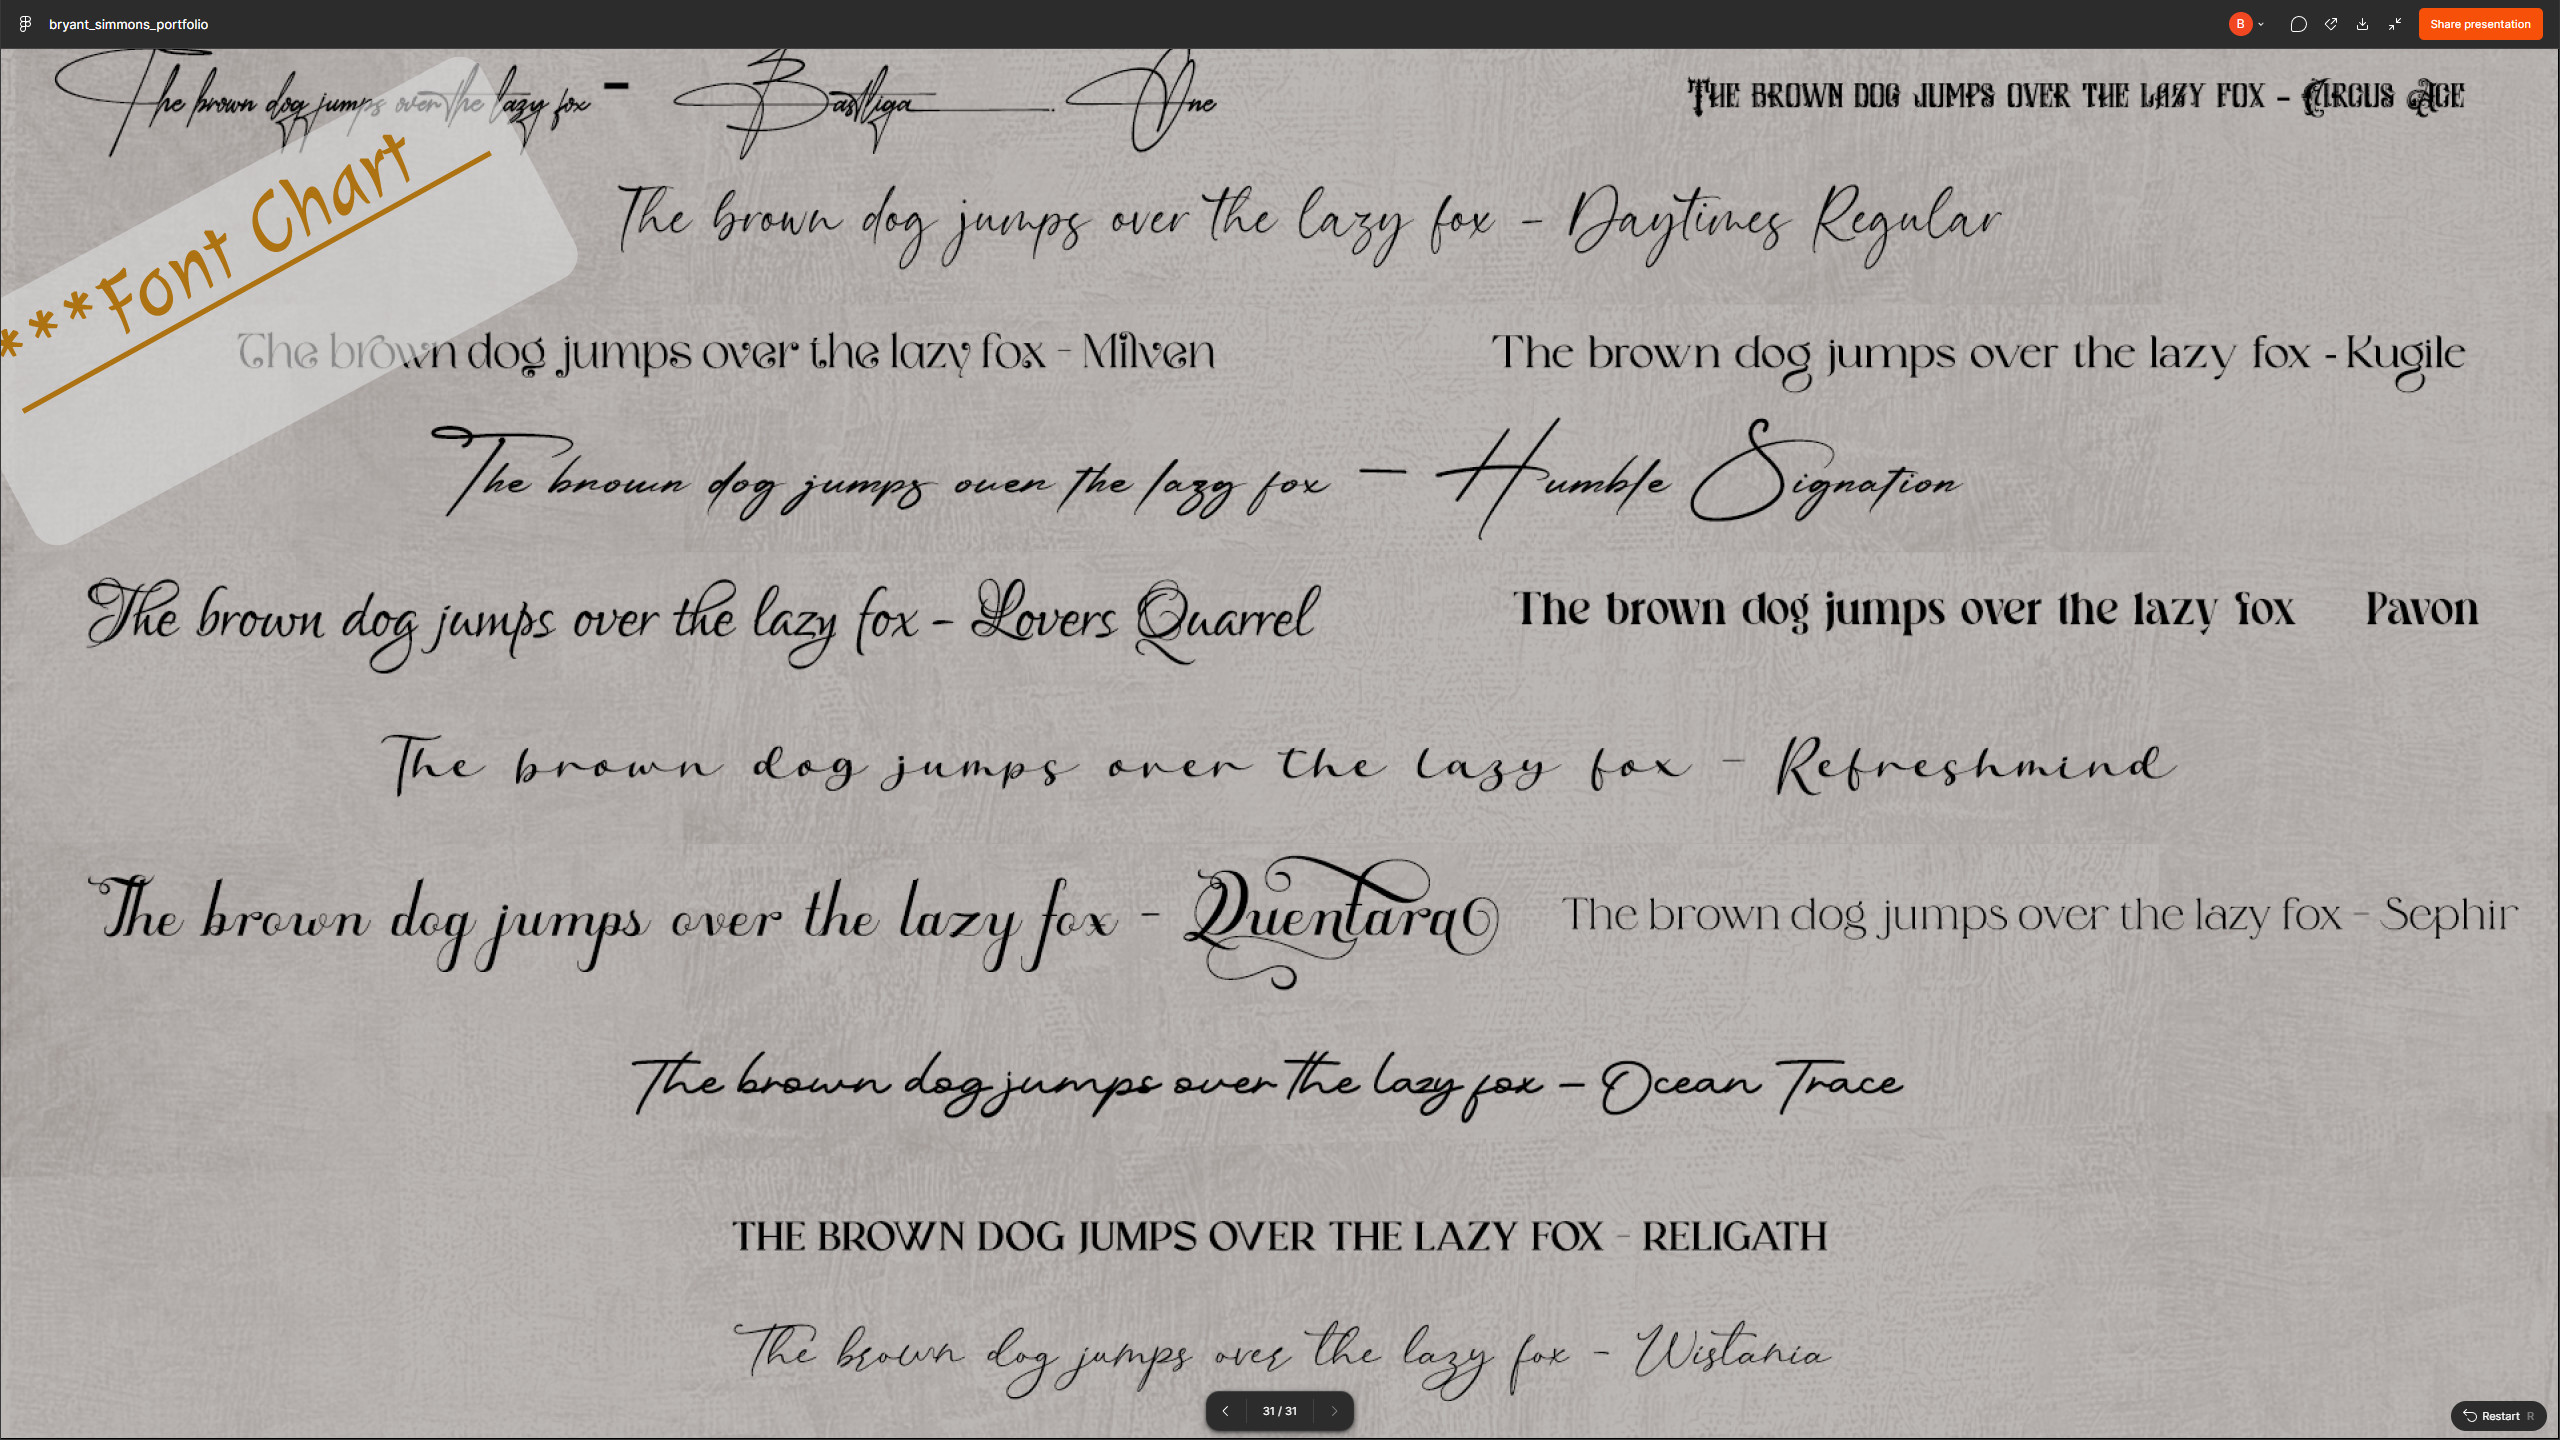 bryant_simmons_portfolio
B
Share presentation
The brown dog jumps over the lazy fox - Bastliga One
THE BROWN DOG JUMPS OVER THE LAZY FOX - CIRCUS AGE
****Font Chart
The brown dog jumps over the lazy fox - Daytimes Regular
The brown dog jumps over the lazy fox - Milven
The brown dog jumps over the lazy fox - Kugile
The brown dog jumps over the lazy fox - Humble Signation
The brown dog jumps over the lazy fox - Lovers Quarrel
The brown dog jumps over the lazy fox Pavon
The brown dog jumps over the lazy fox - Refreshmind
The brown dog jumps over the lazy fox - Quentara
The brown dog jumps over the lazy fox - Sephir
The brown dog jumps over the lazy fox - Ocean Trace
THE BROWN DOG JUMPS OVER THE LAZY FOX - RELIGATH
The brown dog jumps over the lazy fox - Wistania
31 / 31
Restart R